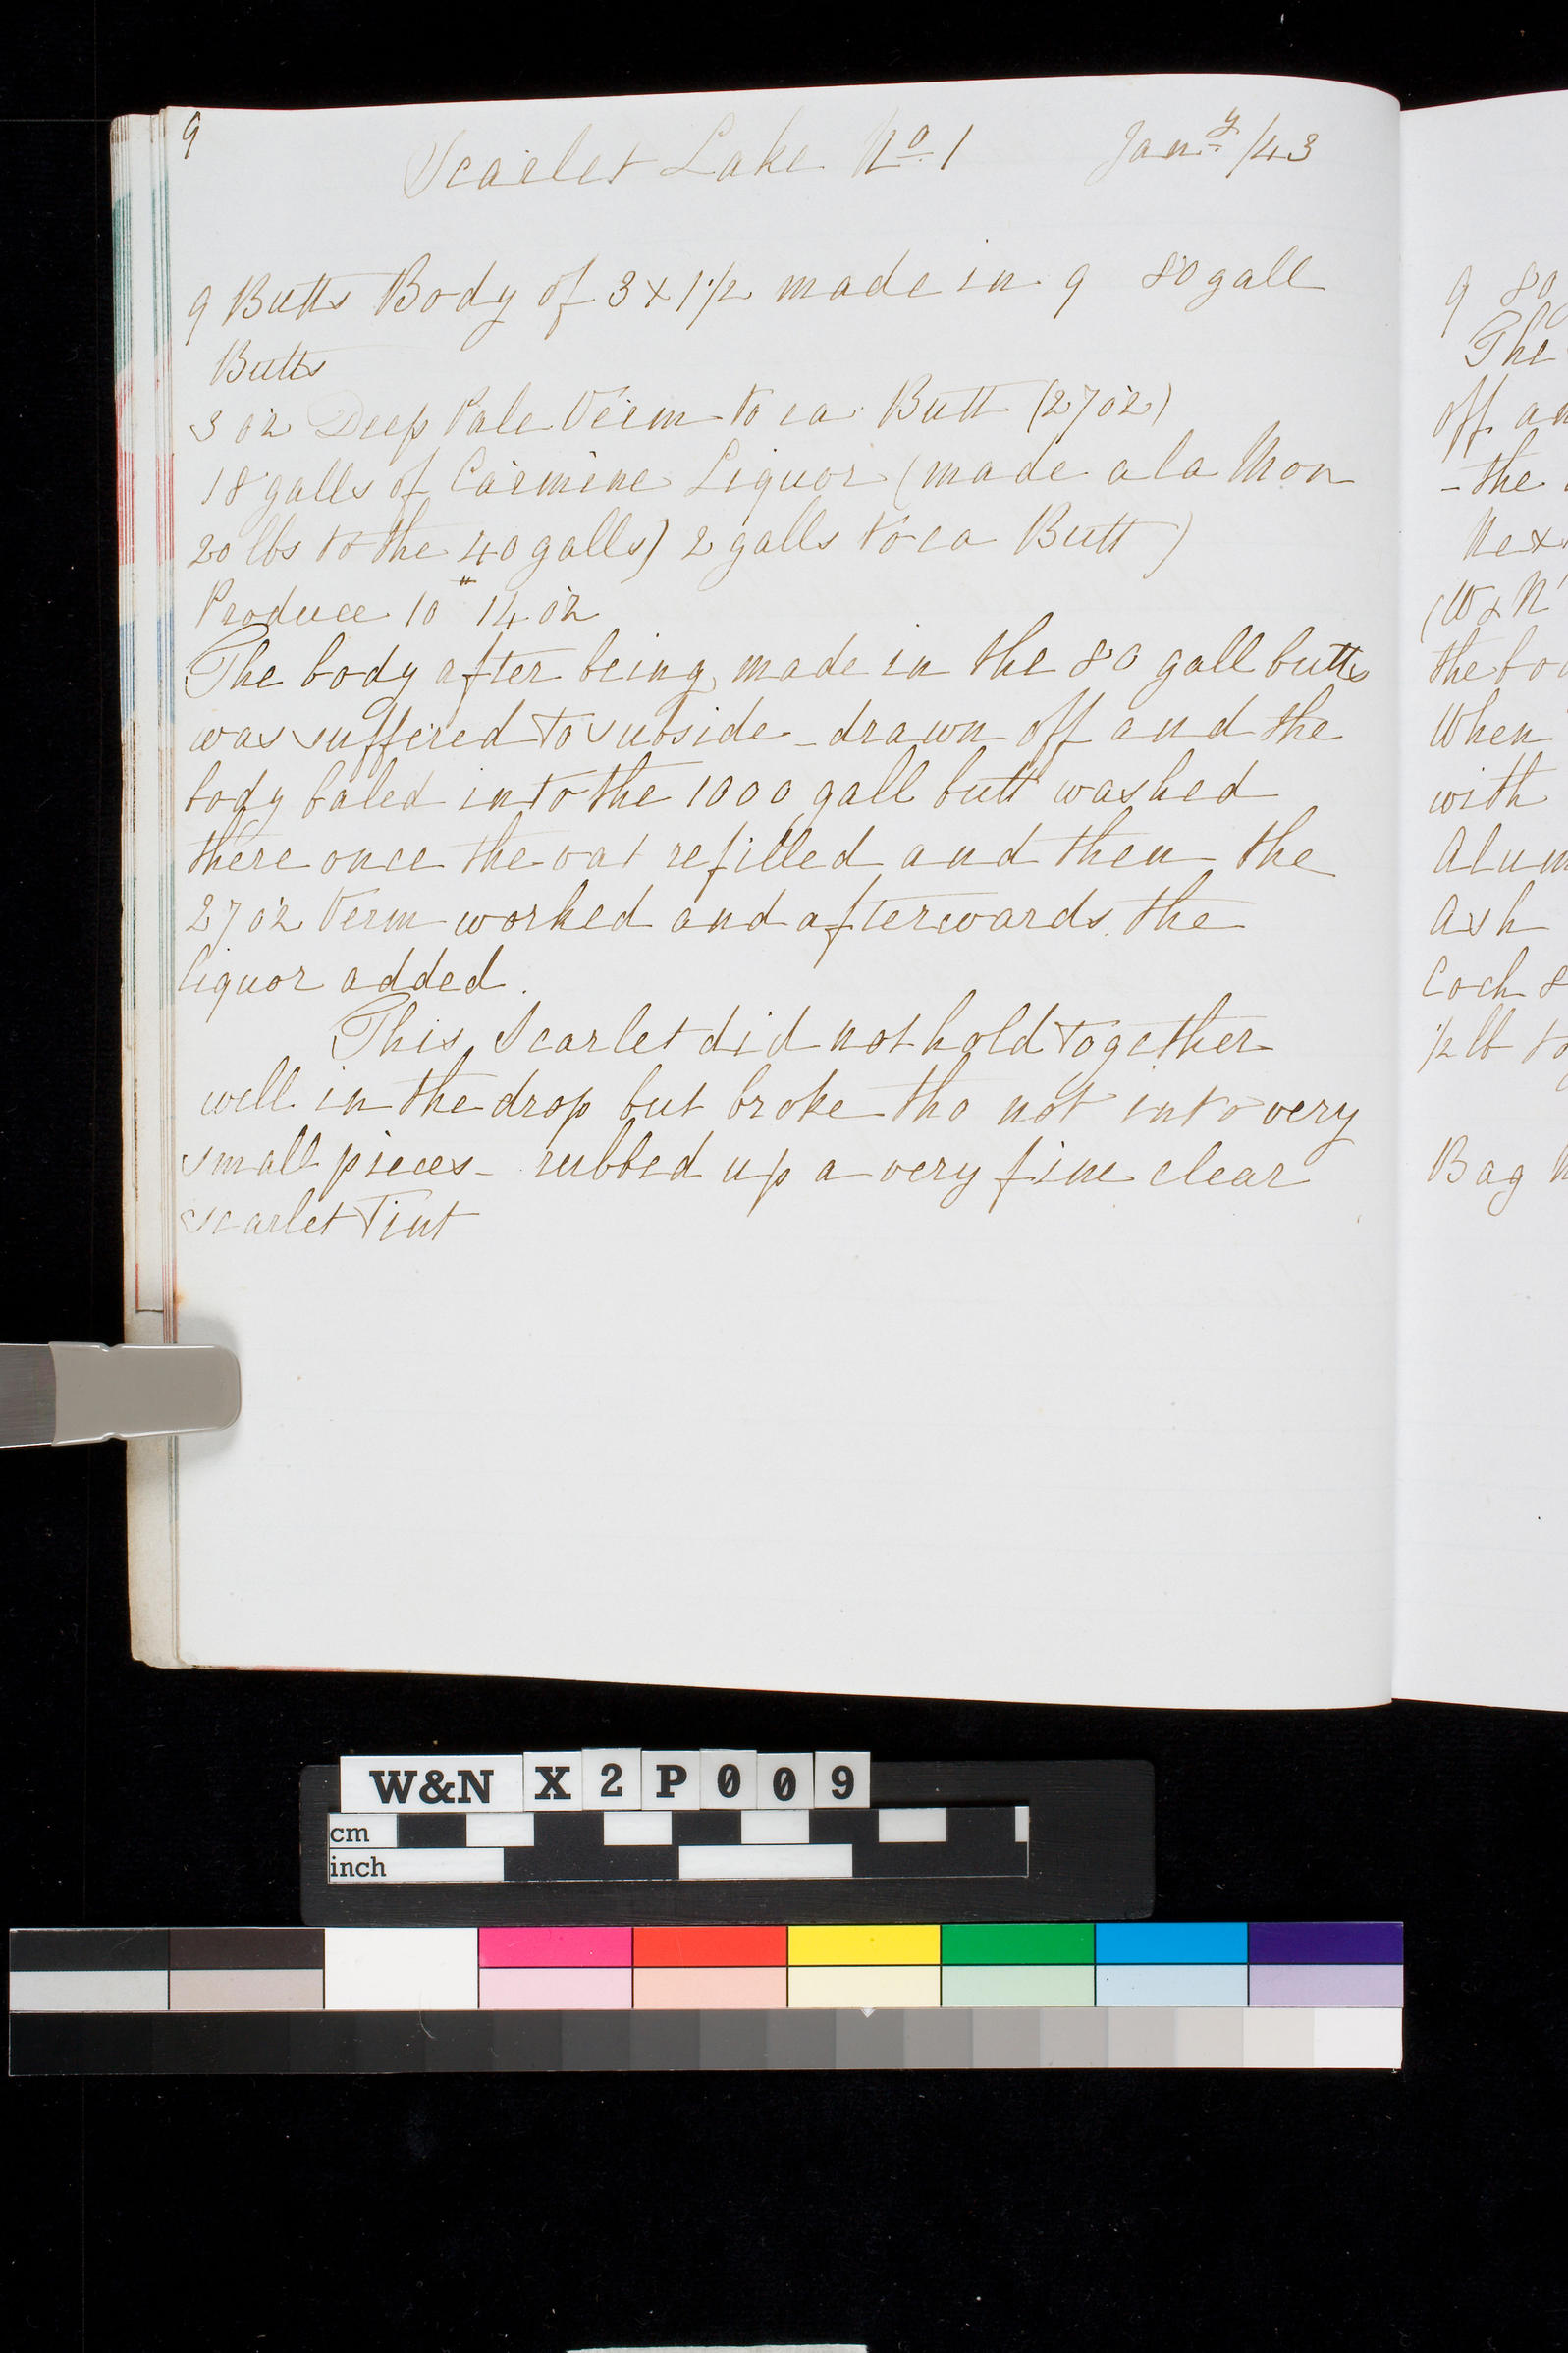 9
Scarlet Lake No. 1 Jany. /43
9 Butts Body of 3 x 1 1/2 made in 9 80 gall
Butts
3 oz Deep Pale Verm to ea Butt (27 oz)
18 galls of Carmine Liquor (made a la Mon
20 lbs to the 40 galls) 2 galls to ea Butt)
Produce 10 " 14 oz
The body after being made in the 80 gall butts
was suffered to subside - drawn off and the
body baled into the 1000 gall butt washed
there once the vat refilled and then the
27 oz Verm worked and afterwards the
liquor added.
This Scarlet did not hold together
well in the drop but broke tho not into very
small pieces - rubbed up a very fine clear
scarlet Tint
9 80
The
off an
- the
Nex
(W & N
the bo
When
with
Alum
Ash
Coch 8
1/2 lb to
Bag
W&N X 2 P 0 0 9
cm
inch